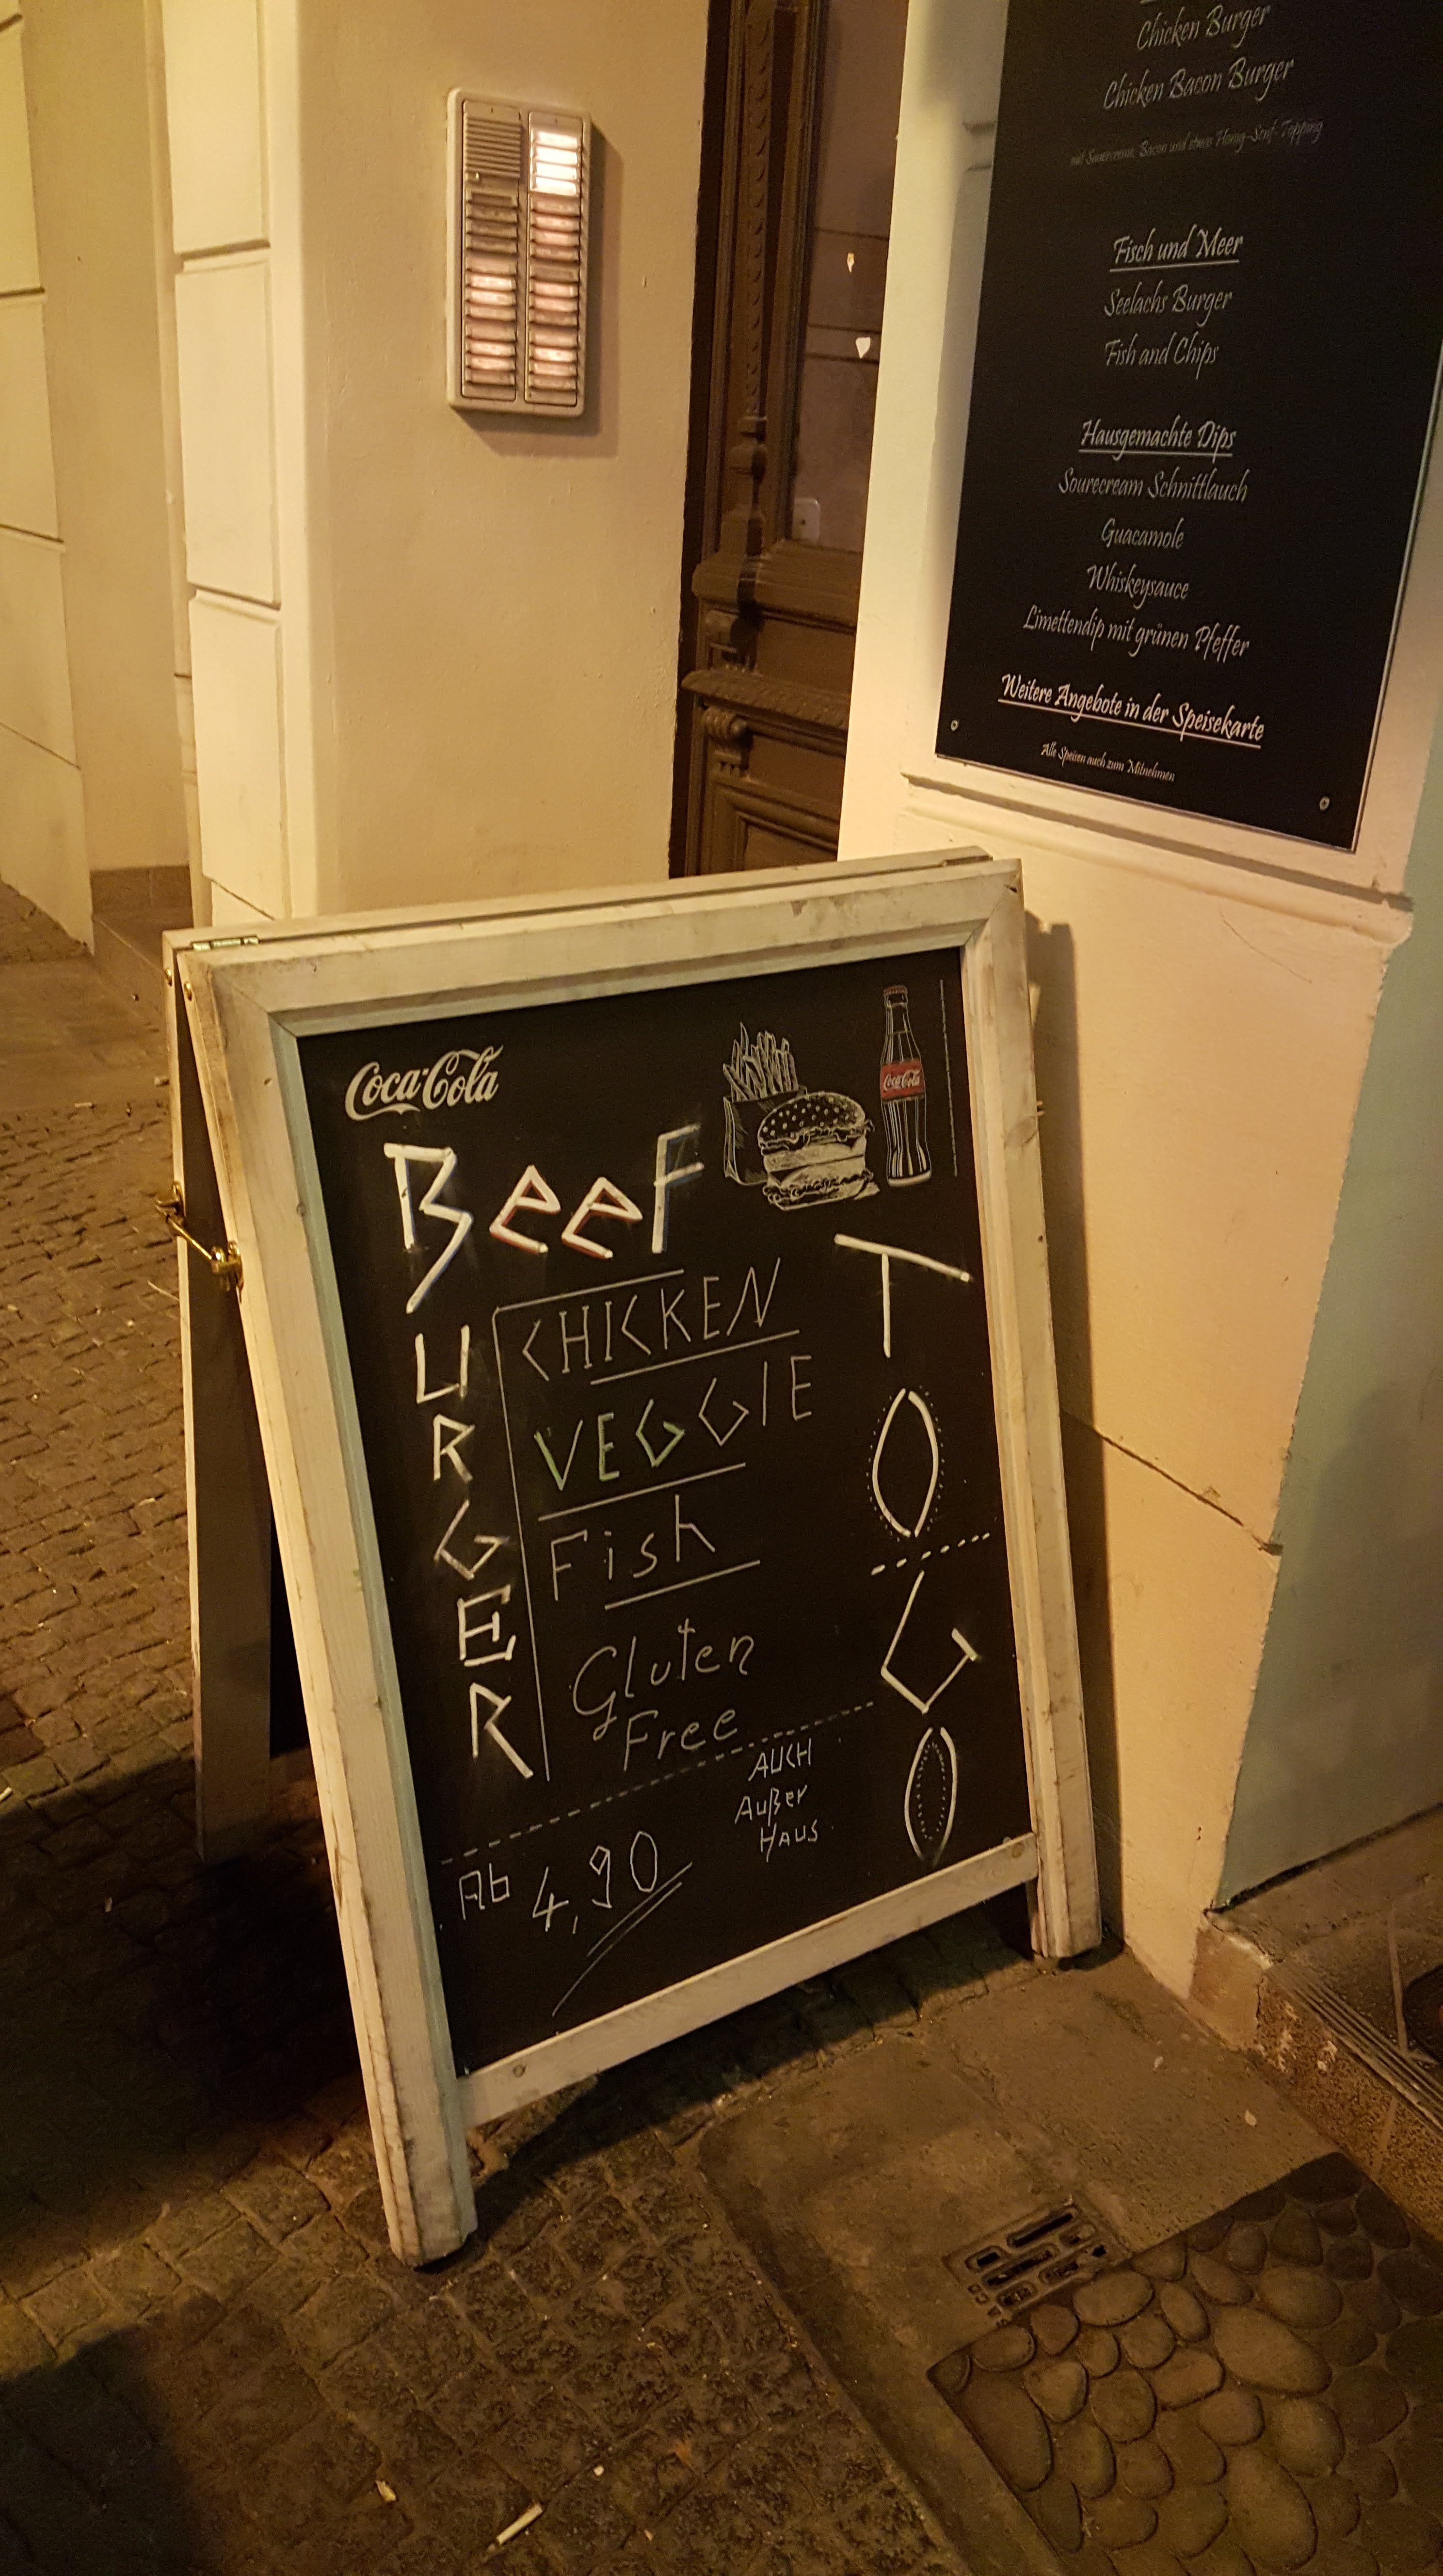 Chicken Burger
Chicken Bacon Burger
mit Sourcreme, Bacon und etwas Honig-Senf-Topping
Fisch und Meer
Seelachs Burger
Fish and Chips
Hausgemachte Dips
Sourecream Schnittlauch
Guacamole
Whiskeysauce
Limettendip mit grünen Pfeffer
Weitere Angebote in der Speisekarte
Alle Speisen auch zum Mitnehmen
Coca-Cola
Coca-Cola
Beef
BURGER
CHICKEN
VEGGIE
Fish
Gluten
Free
TO GO
AUCH
Außer
HAUS
Ab 4,90